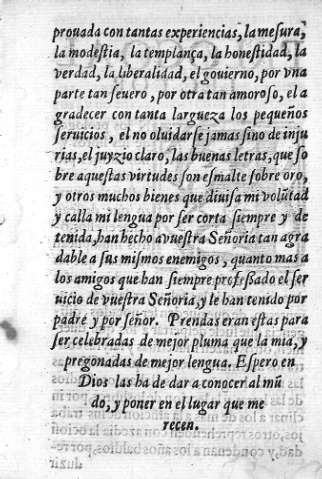 prouada con tantas experiencias, la meſura,
la modeſtia, la templança, la honeſtidad, la
verdad, la liberalidad, el gouierno, por vna
parte tan ſeuero, por otra tan amoroſo, el a
gradecer con tanta largueza los pequeños
ſeruicios, el no oluidarſe jamas ſino de inju
rias, el juyzio claro, las buenas letras, que ſo
bre aqueſtas virtudes ſon eſmalte ſobre oro,
y otros muchos bienes que diuiſa mi volūtad
y calla mi lengua por ſer corta ſiempre y de
tenida, han hecho a vueſtra Señoria tan agra
dable a ſus miſmos enemigos, quanto mas a
los amigos que han ſiempre profeſſado el ſer
uicio de vueſtra Señoria, y le han tenido por
padre y por ſeñor. Prendas eran eſtas para
ſer celebradas de mejor pluma que la mia, y
pregonadas de mejor lengua. Eſpero en
Dios las ha de dar a conocer al mū
do, y poner en el lugar que me
recen.